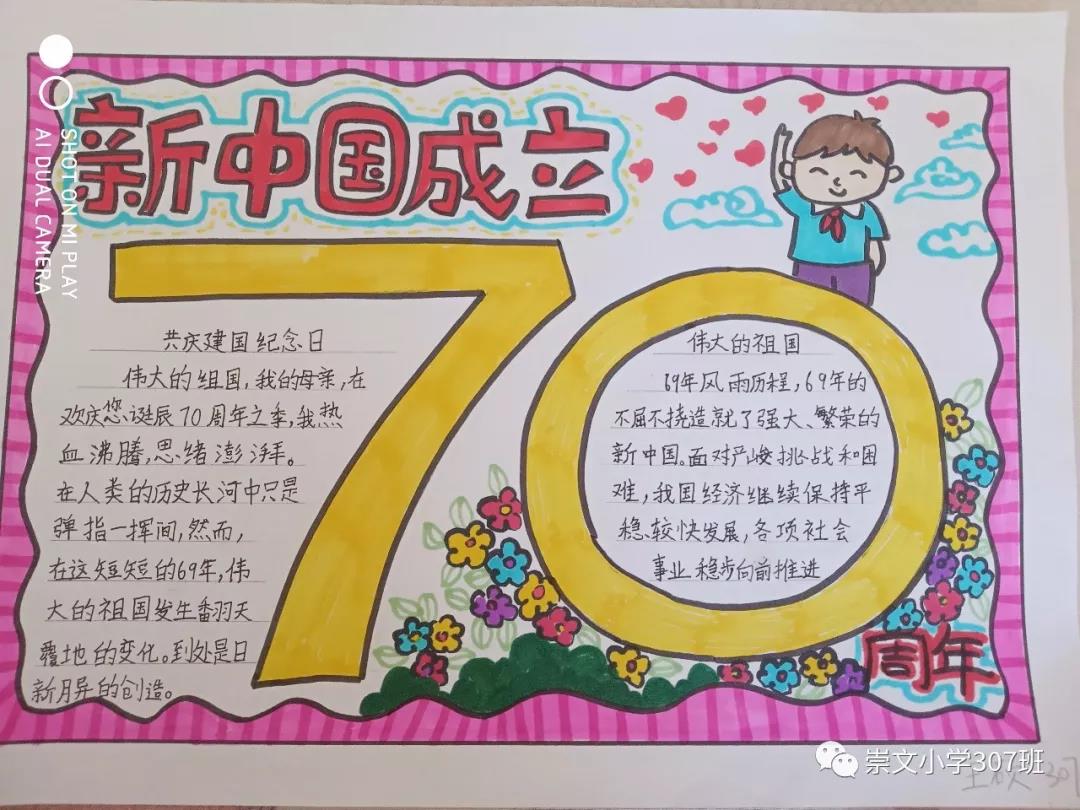 新中国成立
70
周年
共庆建国纪念日
伟大的组国,我的母亲,在
欢庆您诞辰70周年之季,我热
血沸腾,思绪澎湃。
在人类的历史长河中只是
弹指一挥间,然而,
在这短短的69年,伟
大的祖国发生翻天
覆地的变化。到处是日
新月异的创造。
伟大的祖国
69年风雨历程,69年的
不屈不挠造就了强大、繁荣的
新中国。面对严峻挑战和困
难,我国经济继续保持平
稳较快发展,各项社会
事业稳步向前推进
SHOT ON MI PLAY
AI DUAL CAMERA
崇文小学307班
307